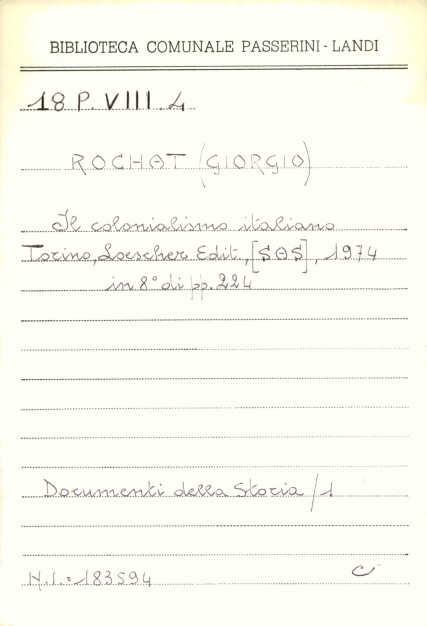 BIBLIOTECA COMUNALE PASSERINI - LANDI
18 P. VIII. 4
ROCHAT (GIORGIO)
Il colonialismo italiano
Torino, Loescher Edit., [SAS], 1974
in 8° di pp. 224
Documenti della Storia / 1
N.I.: 183594
C